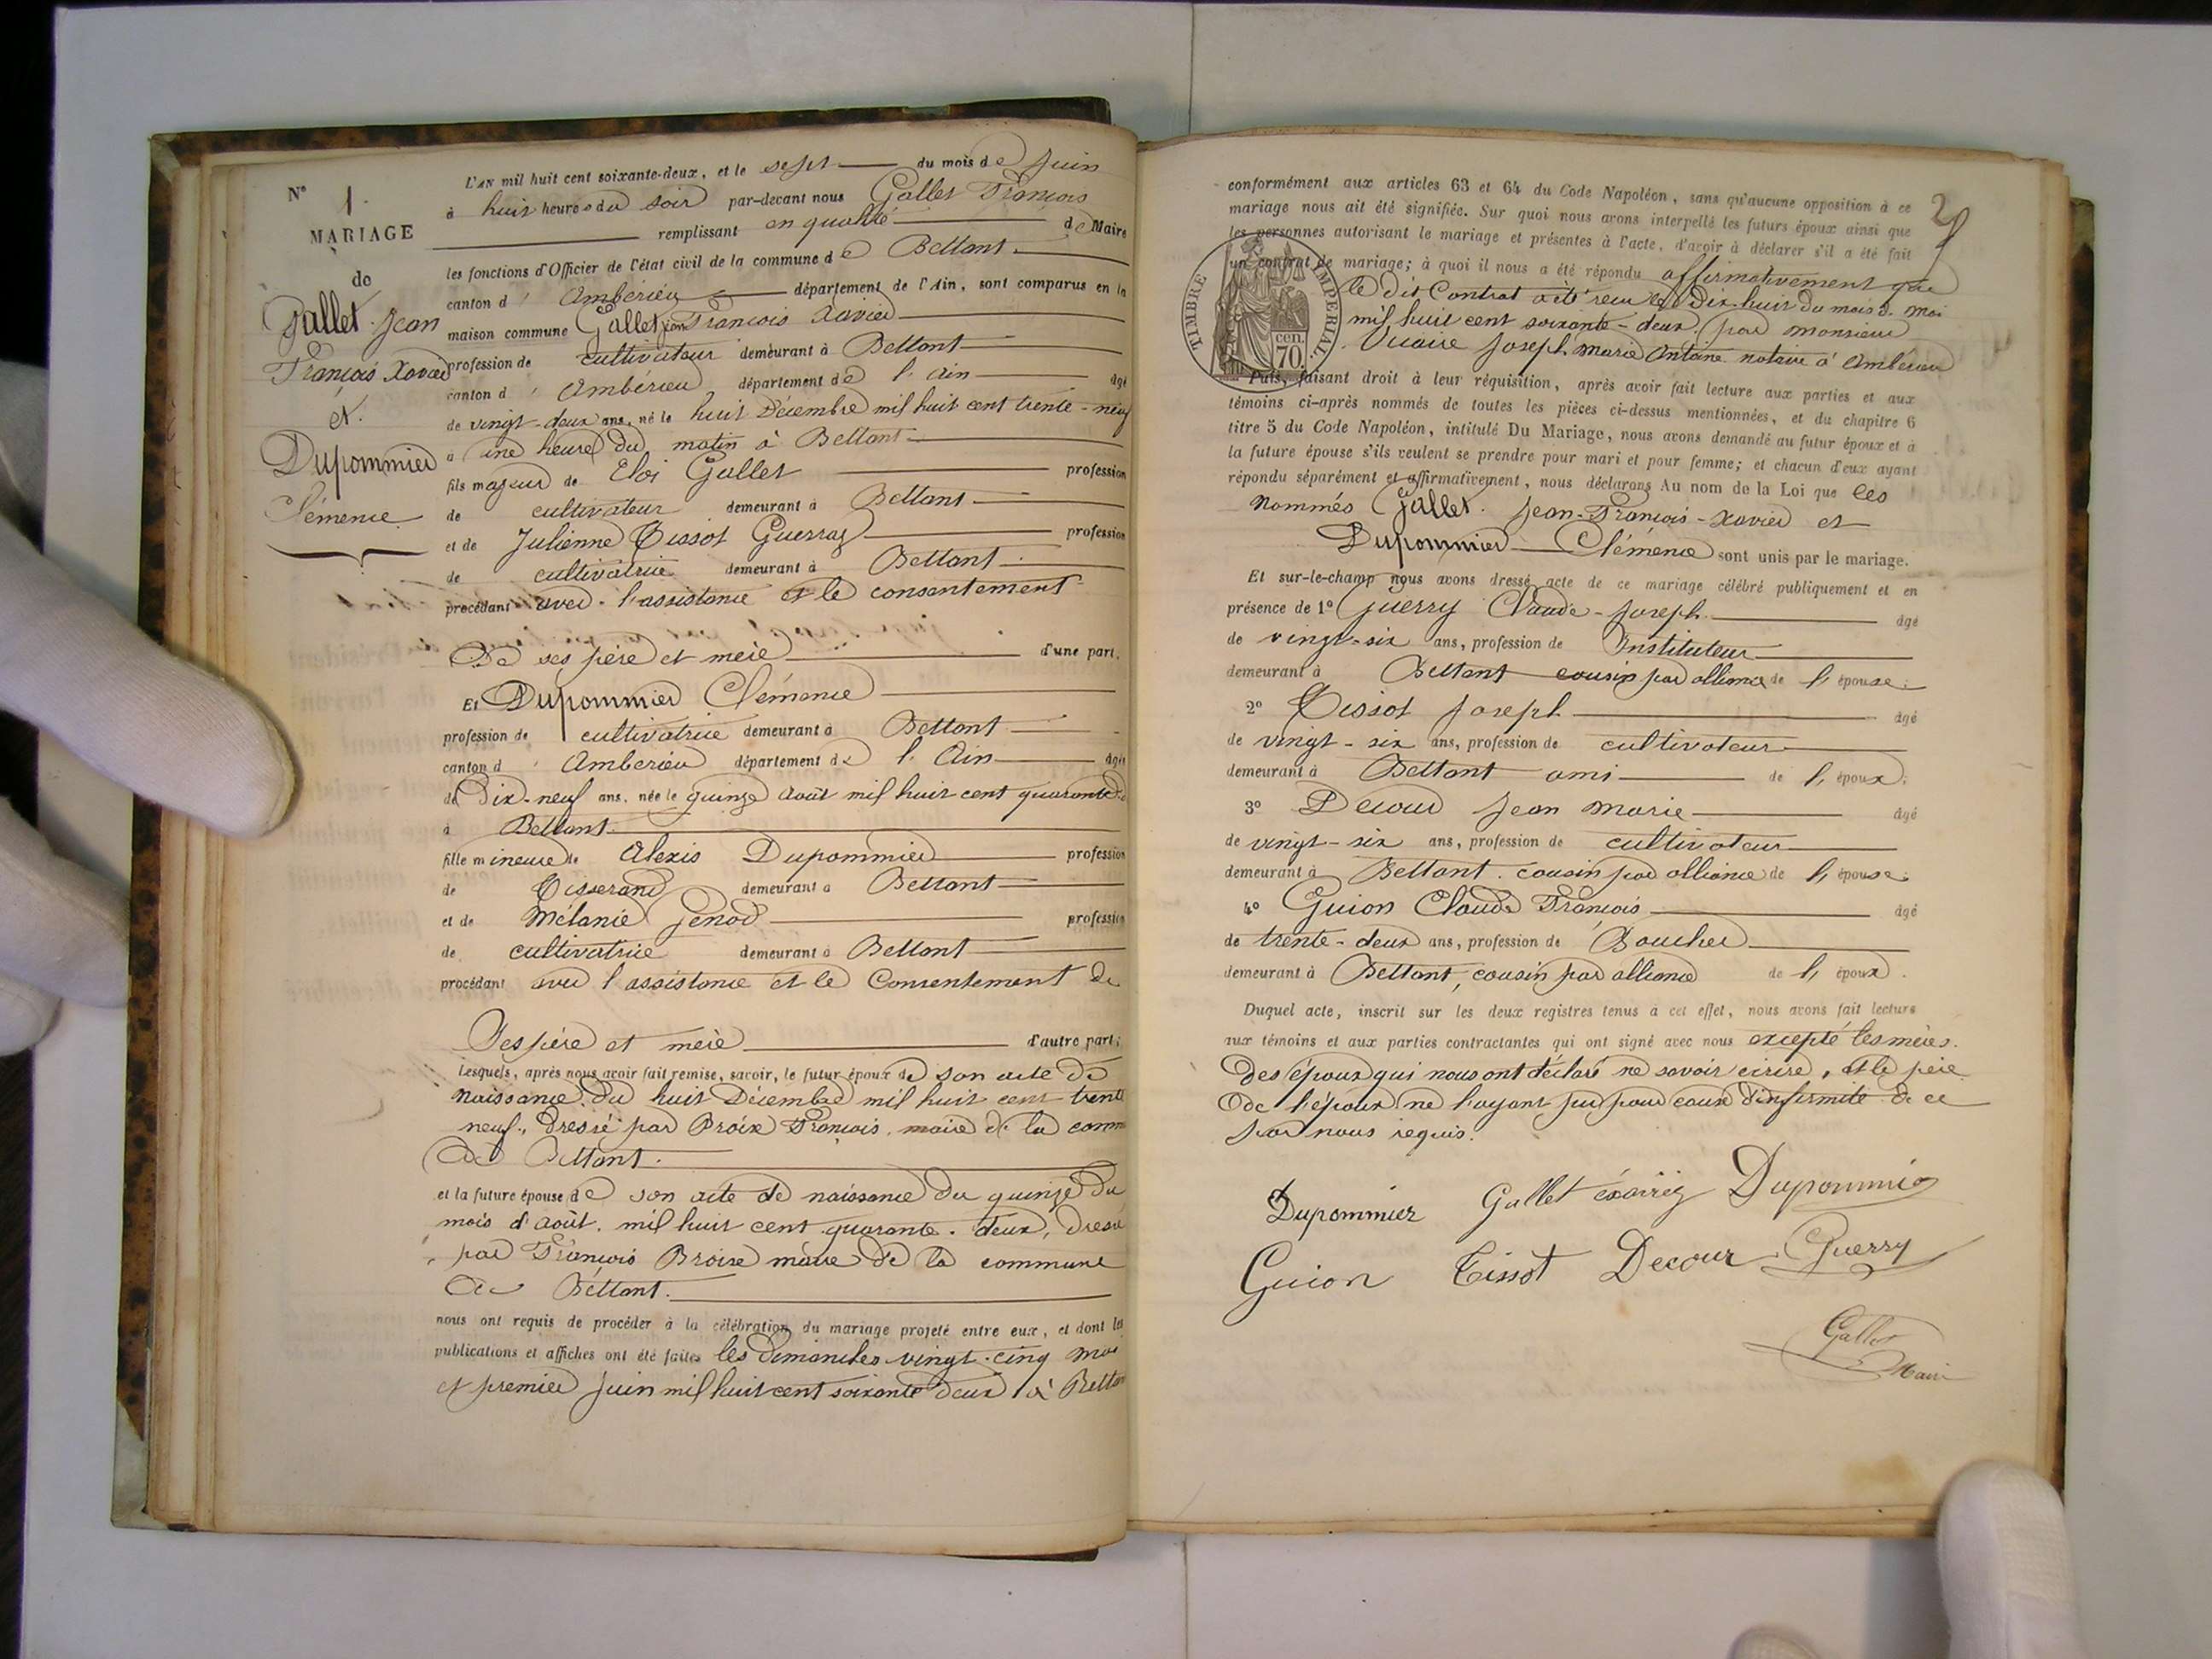 N° 1.
MARIAGE
de
Gallet Jean
François Xavier
et
Dupommier
Clémence
L'AN mil huit cent soixante-deux, et le sept du mois de Juin
à huit heures du soir par-devant nous Gallet François
remplissant en qualité de Maire
les fonctions d'Officier de l'état civil de la commune de Bettant
canton d' Ambérieu département de l'Ain, sont comparus en la
maison commune Gallet Jean François Xavier
profession de cultivateur demeurant à Bettant
canton d' Ambérieu département de l'Ain âgé
de vingt-deux ans, né le huit Décembre mil huit cent trente-neuf
à une heure du matin à Bettant
fils majeur de Eloi Gallet profession
de cultivateur demeurant à Bettant
et de Julienne Tissot Guerraz profession
de cultivatrice demeurant à Bettant
procédant avec l'assistance et le consentement
De ses père et mère d'une part,
Et Dupommier Clémence
profession de cultivatrice demeurant à Bettant
canton d' Ambérieu département de l'Ain âgée
de Dix-neuf ans, née le quinze Août mil huit cent quarante
à Bettant
fille mineure de Alexis Dupommier profession
de Tisserand demeurant à Bettant
et de Mélanie Genod profession
de cultivatrice demeurant à Bettant
procédant avec l'assistance et le Consentement de
Ses père et mère d'autre part;
Lesquels, après nous avoir fait remise, savoir, le futur époux de son acte de
Naissance du huit Décembre mil huit cent trente
neuf, Dressé par Broix François, maire de la comm
De Bettant.
et la future épouse de son acte de naissance du quinze du
mois d'août mil huit cent quarante-deux, Dressé
par François Broise maire de la commune
De Bettant.
nous ont requis de procéder à la célébration du mariage projeté entre eux, et dont les
publications et affiches ont été faites les Dimanches vingt-cinq mai
et premier Juin mil huit cent soixante deux à Bettan
2
conformément aux articles 63 et 64 du Code Napoléon, sans qu'aucune opposition à ce
mariage nous ait été signifiée. Sur quoi nous avons interpellé les futurs époux ainsi que
les personnes autorisant le mariage et présentes à l'acte, d'avoir à déclarer s'il a été fait
un contrat de mariage; à quoi il nous a été répondu affirmativement que
le dit Contrat a été reçu le Dix-huit du mois de mai
mil huit cent soixante-deux par monsieur
Vicaire Joseph Marie Antoine notaire à Ambérieu
TIMBRE IMPERIAL.
70 cen.
Puis, faisant droit à leur réquisition, après avoir fait lecture aux parties et aux
témoins ci-après nommés de toutes les pièces ci-dessus mentionnées, et du chapitre 6
titre 5 du Code Napoléon, intitulé Du Mariage, nous avons demandé au futur époux et à
la future épouse s'ils veulent se prendre pour mari et pour femme; et chacun d'eux ayant
répondu séparément et affirmativement, nous déclarons Au nom de la Loi que les
Nommés Gallet Jean-François-Xavier et
Dupommier Clémence sont unis par le mariage.
Et sur-le-champ nous avons dressé acte de ce mariage célébré publiquement et en
présence de 1° Guerry Claude-Joseph âgé
de vingt-six ans, profession de Instituteur
demeurant à Bettant cousin par alliance de l'épouse;
2° Tissot Joseph âgé
de vingt-six ans, profession de cultivateur
demeurant à Bettant ami de l'époux;
3° Decour Jean Marie âgé
de vingt-six ans, profession de cultivateur
demeurant à Bettant. cousin par alliance de l'épouse;
4° Guion Claude François âgé
de trente-deux ans, profession de Boucher
demeurant à Bettant, cousin par alliance de l'époux.
Duquel acte, inscrit sur les deux registres tenus à cet effet, nous avons fait lecture
aux témoins et aux parties contractantes qui ont signé avec nous excepté les mères
Des époux qui nous ont déclaré ne savoir écrire, et le père
De l'époux ne l'ayant pu pour cause d'infirmité de ce
par nous requis.
Dupommier Gallet Dupommier
Guion Tissot Decour Guerry
Gallet
Maire